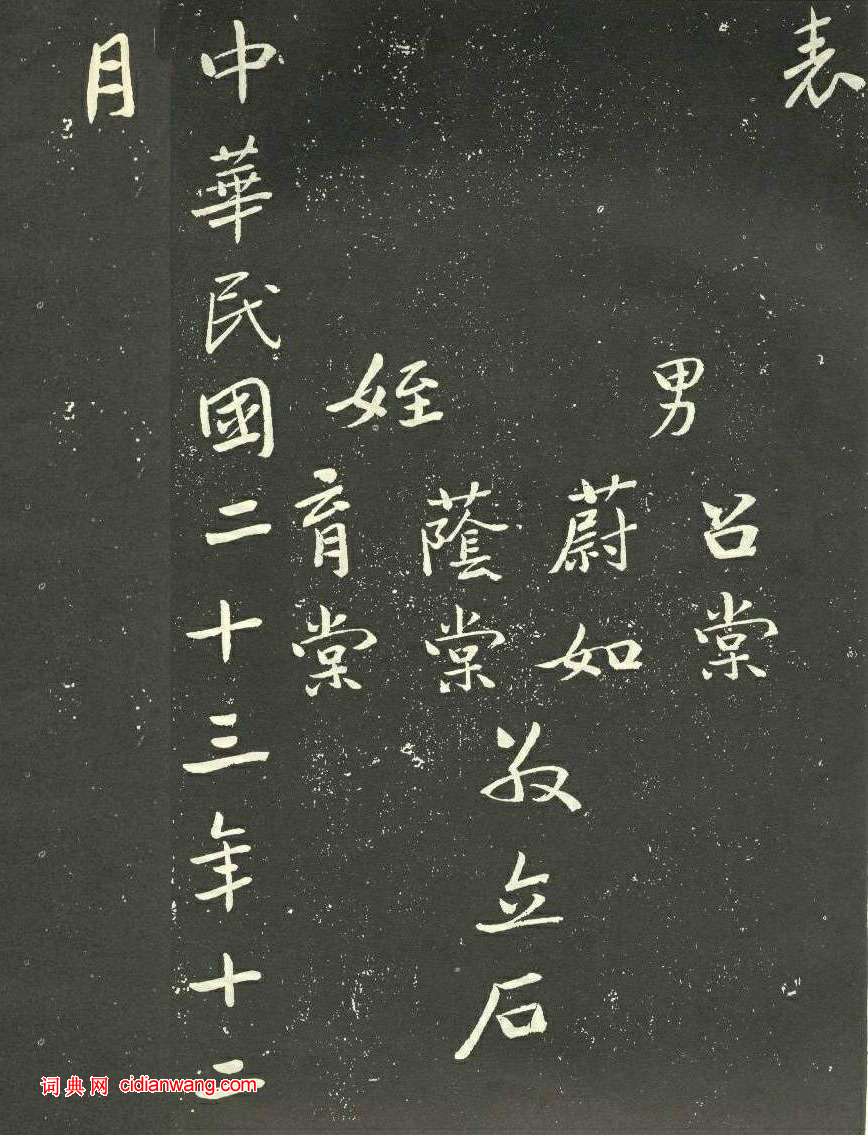 表
男
召棠
蔚如
姪
蔭棠
育棠
敬立石
中華民國二十三年十二
月
词典网 cidianwang.com